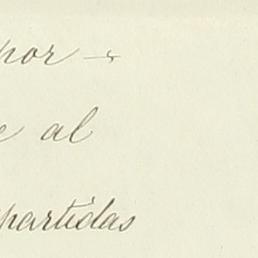 por -
e al
partidas